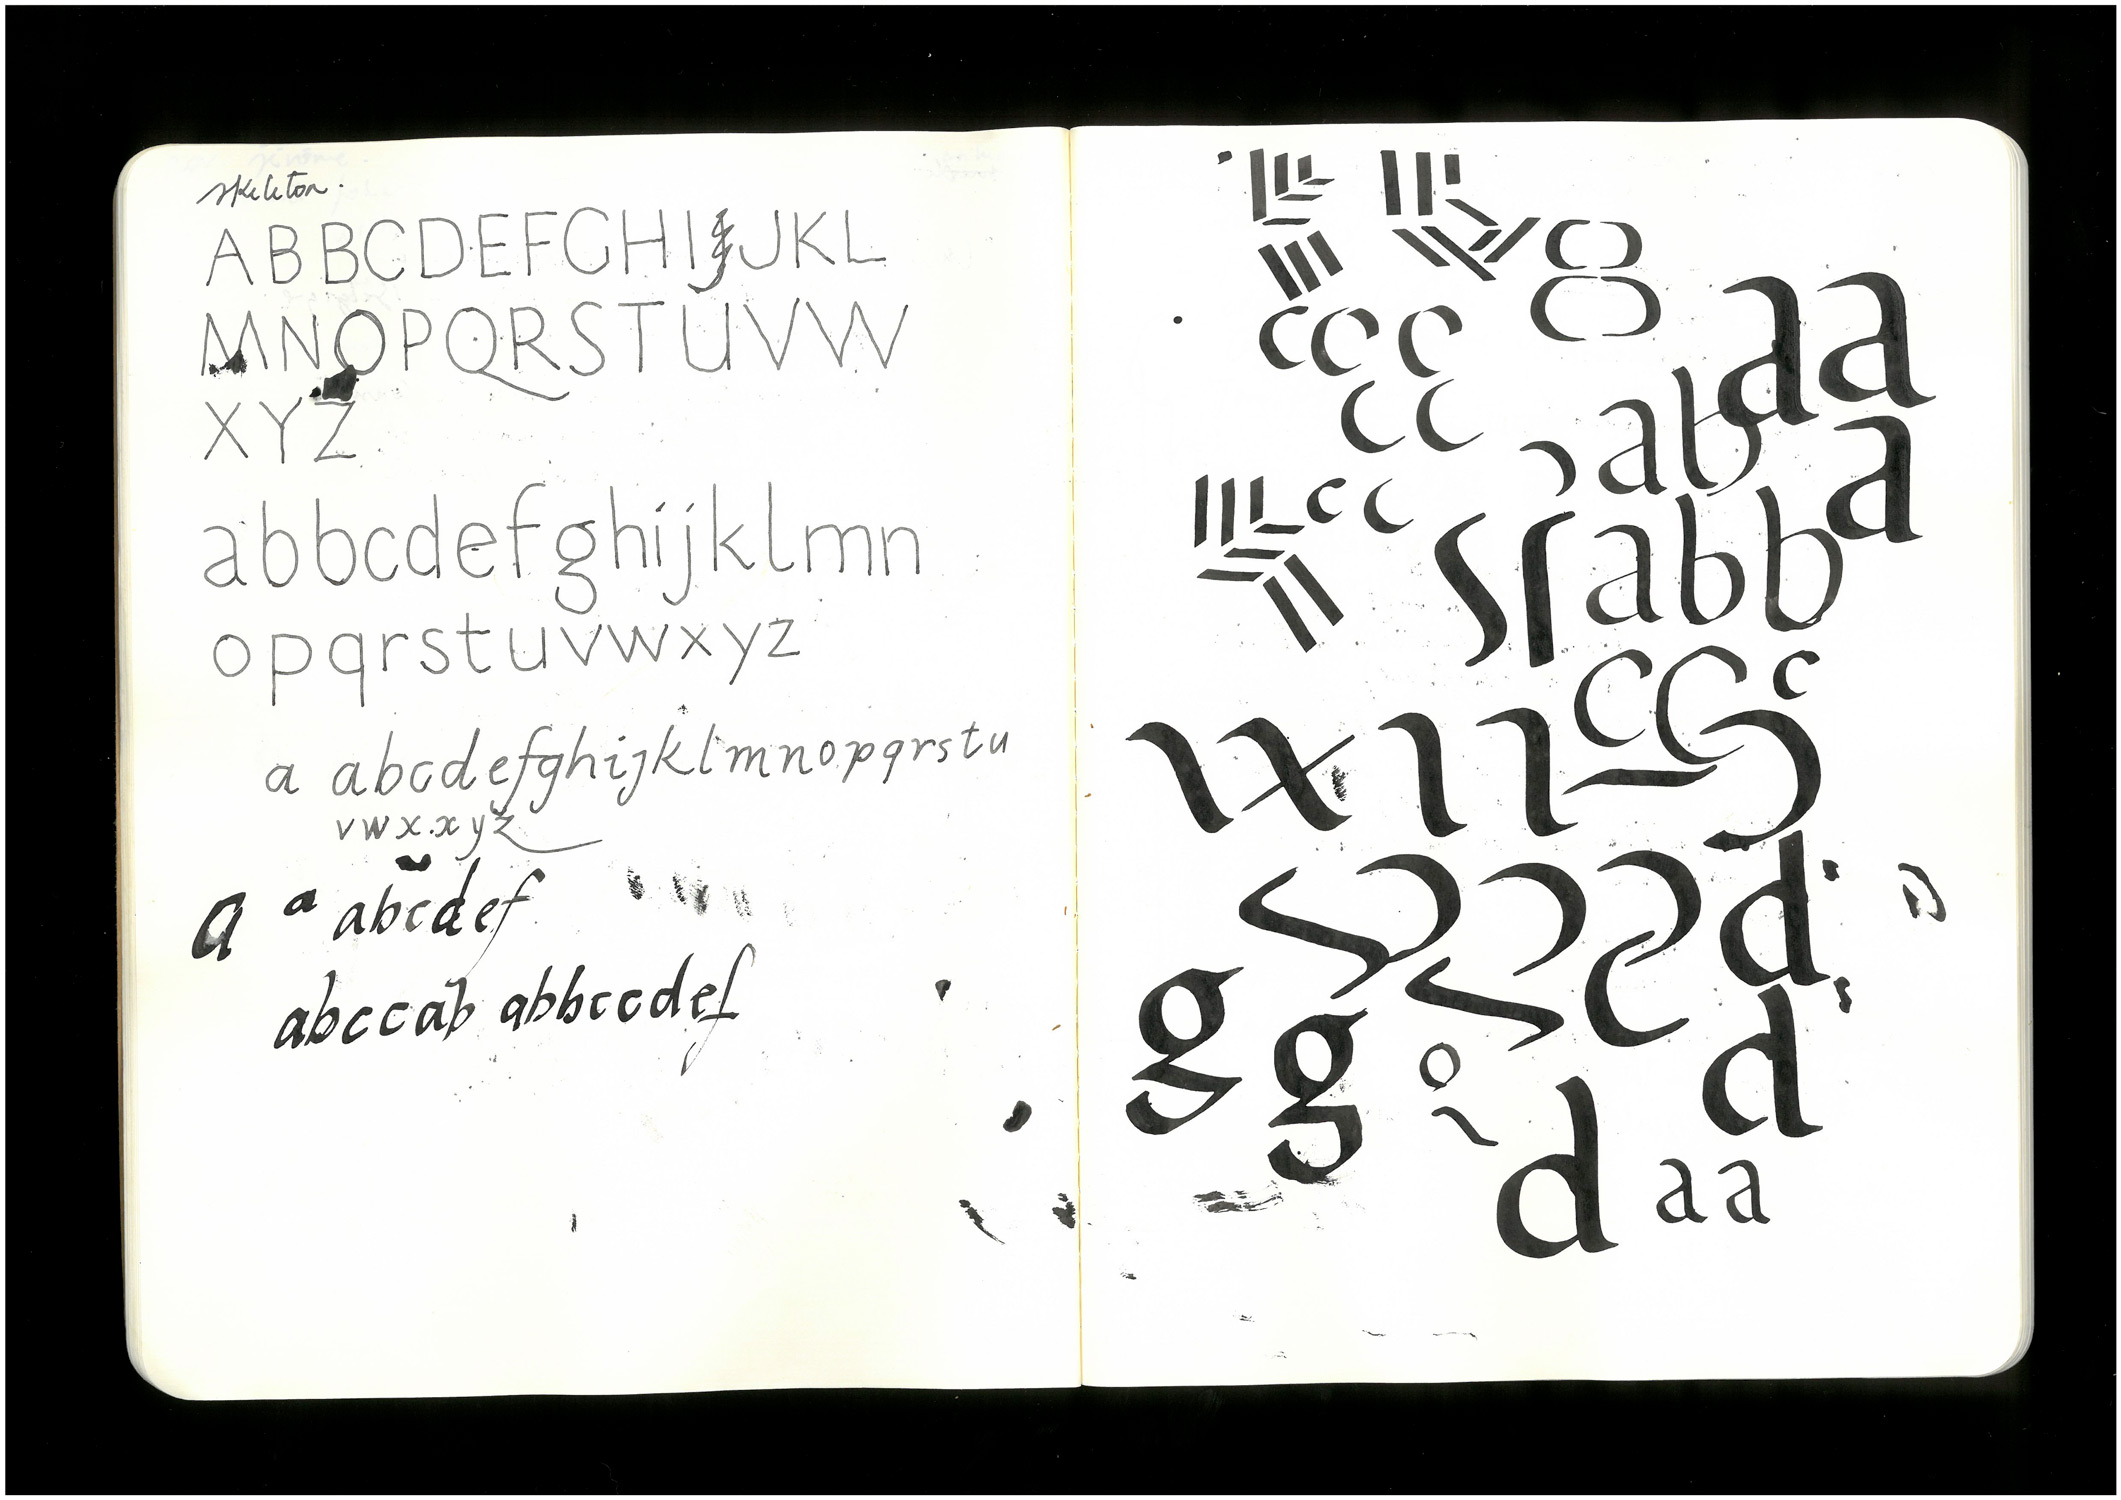 skeleton.
ABBCDEFGHIJKL
MNOPQRSTUVW
XYZ
abbcdefghijklmn
opqrstuvwxyz
a abcdefghijklmnopqrstu
vwx.xyz
a a abcdef
abccab abbccdef
aa
ccc
cc
ab
cc
a
abb
ccc
d
g
g
d
d
aa